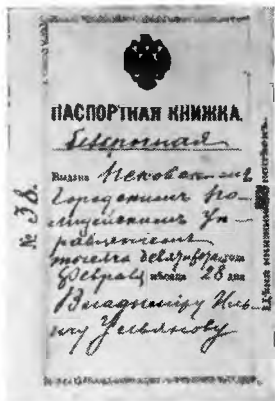 ПАСПОРТНАЯ КНИЖКА.
Безсрочная
Выдана Псковскимъ
Городскимъ По-
лицейскимъ Уп-
равленіемъ
тысяча девятисотаго
Февраля мѣсяца 28 дня
Владиміру Иль-
ичу Ульянову
№ 38.